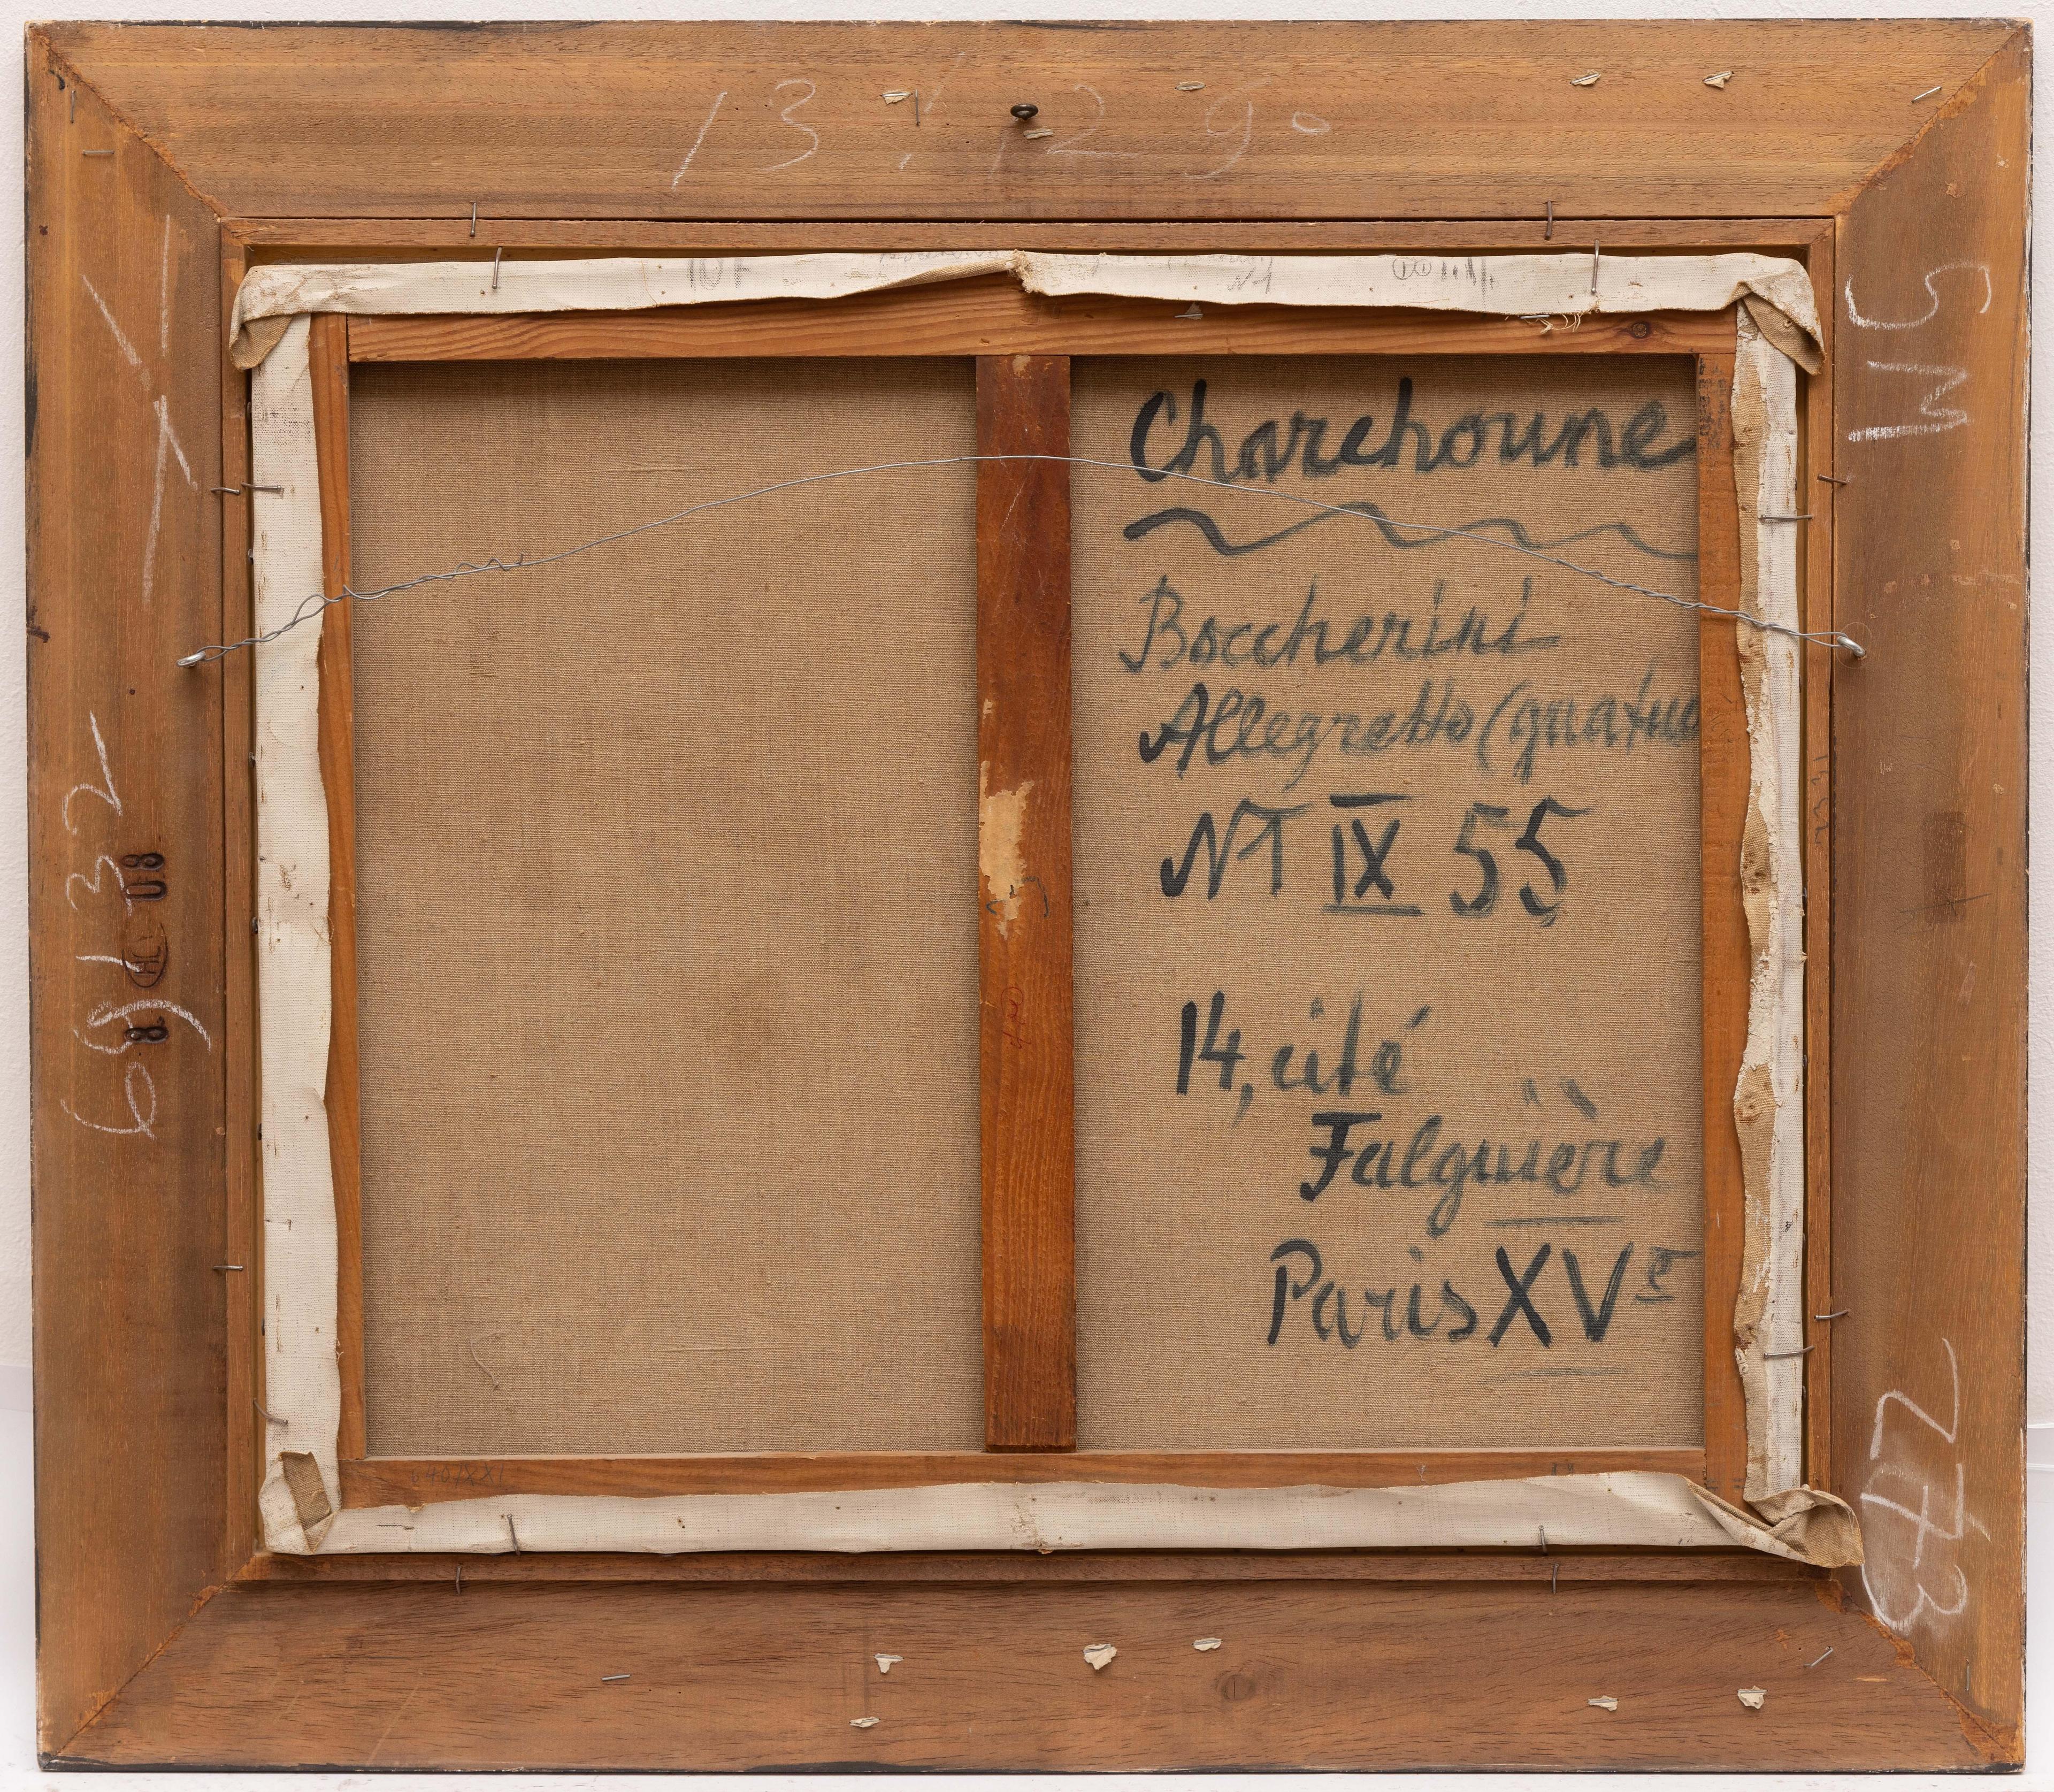 13.12 90
Charchoune
Boccherini
Allegretto (quatuo
N1 IX 55
14, cité
Falguière
Paris XVe
N1
6132
80
8
473